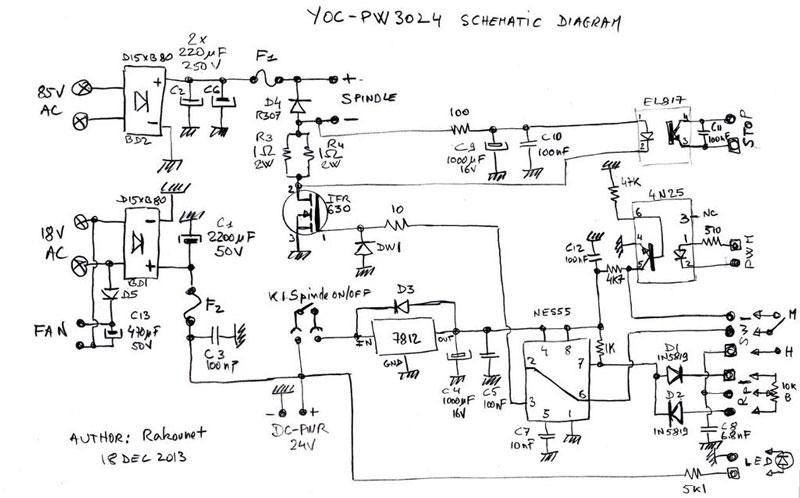 YOC-PW3024 SCHEMATIC DIAGRAM
D15XB80
2x
220µF
250V
F1
85V
AC
+
-
C2
C6
BD2
+
-
SPINDLE
D4
R307
R3
1Ω
2W
R4
1Ω
2W
100
C9
1000µF
16V
C10
100nF
EL817
1
2
4
3
C11
100nF
STOP
D15XB80
18V
AC
-
+
BD1
C1
2200µF
50V
2
IFR
630
3
1
10
DW1
47K
4N25
6
4
5
3
NC
1
2
510
PWM
C12
100nF
4K7
D5
FAN
C13
470µF
50V
F2
C3
100nF
K1.Spindle ON/OFF
D3
IN
7812
OUT
GND
C4
1000µF
16V
C5
100nF
NE555
4
8
2
7
3
6
5
1
1K
C7
10nF
D1
1N5819
D2
1N5819
SW1
M
H
RP1
10K
B
C8
6.8nF
LED
5K1
-
+
DC-PWR
24V
AUTHOR: Rakounet
18 DEC 2013